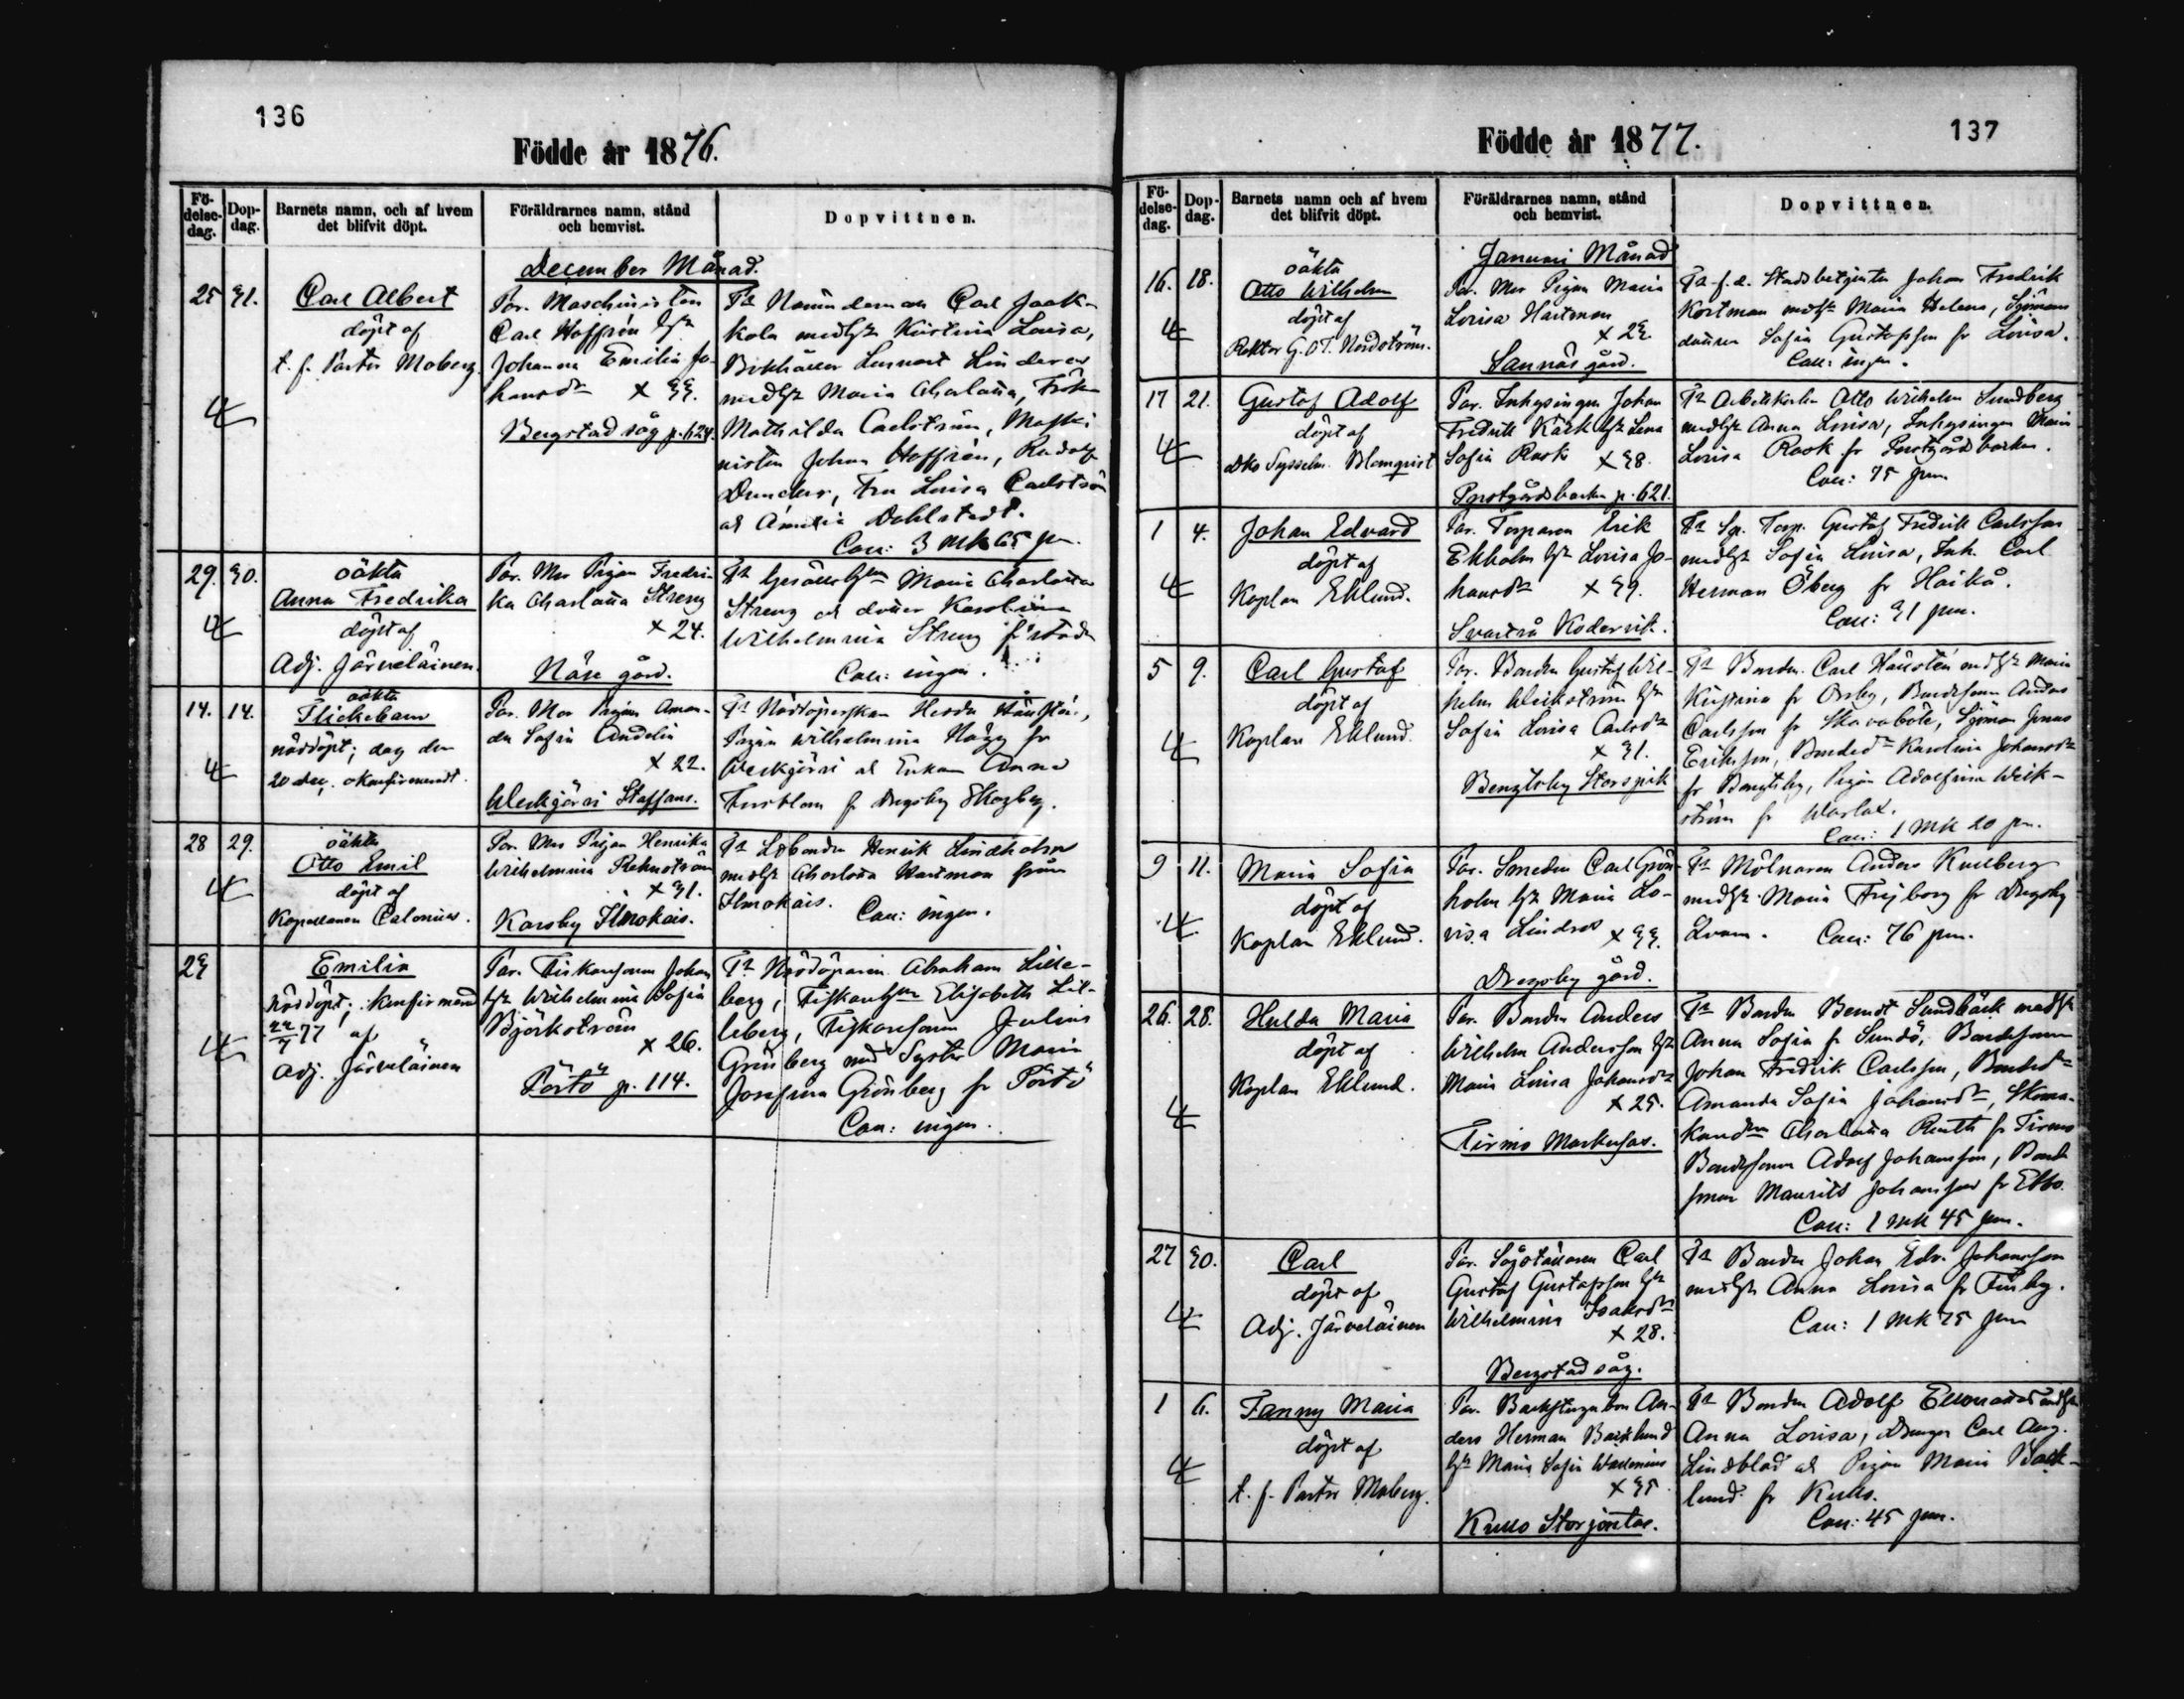 136
Födde år 1876.
Fö-
delse-
dag.
Dop-
dag.
Barnets namn, och af hvem
det blifvit döpt.
Föräldrarnes namn, stånd
och hemvist.
Dopvittnen.
December Månad.
25 31.
Carl Albert
döpt af
t. f. Pastor Moberg.
Par. Maschinisten
Carl Hoffrén hst
Johanna Emilia Jo-
hansdr x 33.
Bergstad såg p. 624.
Tt Nämndeman Carl Jaak-
kola med hst Kristina Lovisa,
Bokhållar Lennart Linderos
med hst Maria Charlotta, Frök
Mathilda Carlström, Maski-
nisten Johan Hoffrén, Rudolf
Duncker, Fru Lovisa Carlström
och Amalia Dahlstedt.
Cau: 3 mk 65 pn.
29. 30.
oäkta
Anna Fredrika
döpt af
Adj. Järveläinen.
Par. Mor Pigan Fredri-
ka Charlotta Streng
x 24.
Näse gård.
Maria Charlotta
Streng och dotter Karolina
Wilhelmina Streng
Cau: ingen.
14. 14.
oäkta
Flickebarn
nöddöpt; dog den
20 dec. okonfirmeradt.
Par. Mor Pigan Aman-
da Sofia Andelin
x 22.
Weckjärvi Staffans.
Tt Nöddöperskan Hedda
Pigan Wilhelmina Hägg fr
Weckjärvi och Enkan Anna
28 29.
oäkta
Otto Emil
döpt af
Kapellanen Calonius.
Par. Mor Pigan Henrika
Wilhelmina Rehnström
x 31.
Karsby Ilmokais.
Tt Henrik Lindholm
med hst Charlotta Hartman från
Ilmokais.
Cau: ingen.
23
Emilia
Nöddöpt; konfirmerad
22/7 77 af
Adj. Järveläinen
Par. Fiskaresonen Johan
hst Wilhelmina Sofia
Björkström
x 26.
Pörtö p. 114.
Tt Nöddöparen Abraham Lille-
berg, Elisabeth Lil-
leberg, Fiskaresonen Julius
Grönberg med Syster Maria
Josefina Grönberg fr Pörtö
Cau: ingen.
137
Födde år 1877.
Fö-
delse-
dag.
Dop-
dag.
Barnets namn och af hvem
det blifvit döpt.
Föräldrarnes namn, stånd
och hemvist.
Dopvittnen.
Januari Månad
16. 18.
oäkta
Otto Wilhelm
döpt af
Rektor G. O T. Nordström.
Par. Mor Pigan Maria
Lovisa Hartman
x 23
Sannäs gård.
Tt f. d. Stadsbetjenten Johan Fredrik
Kortman med hst Maria Helena, Sjömans
dottren Sofia Gustafsson fr Lovisa.
Cau: ingen.
17 21.
Gustaf Adolf
döpt af
Sysselm. Blomqvist
Par. Inhysingen Johan
Fredrik Käck hst Lena
Sofia Rask x 38.
Prostgårdsbacken p. 621.
Tt Arbetskarlen Otto Wilhelm Sundberg
med hst Anna Lovisa, Inhysingen Maria
Lovisa Rask fr Prostgårdsbacken.
Cau: 75 pnn.
1 4.
Johan Edvard
döpt af
Kaplan Eklund.
Par. Torparen Erik
Ekholm hst Lovisa Jo-
hansdr x 39.
Svartså Kodervik.
Tt Sp. Torp. Gustaf Fredrik Carlsson
med hst Sofia Lovisa, Inh. Carl
Herman Öberg fr Haikå.
Cau: 31 pnn.
5 9.
Carl Gustaf
döpt af
Kaplan Eklund.
Par. Bonden Gustaf Wil-
helm Weckström hst
Sofia Lovisa Carlsdr
x 31.
Bengtsby Storspik
Tt Bonden Carl med hst Maria
Kristina fr Orrby, Bondesonen Anders
Carlsson fr Skavaböle, Sjöman Jonas
Eriksson, Bondedr Karolina Johansdr
fr Bengtsby, Pigan Adolfina Weck-
ström fr Warlax.
Cau: 1 mk 20 pn.
9 11.
Maria Sofia
döpt af
Kaplan Eklund.
Par. Smeden Carl Grön-
holm hst Maria Lo-
visa Lindroos x 33.
Drägsby gård.
Tt Mölnaren Anders Kullberg
med hst Maria Frejborg fr Drägsby
Qvarn. Cau: 76 pnn.
26. 28.
Hulda Maria
döpt af
Kaplan Eklund.
Par. Bonden Anders
Wilhelm Andersson hst
Maria Lovisa Johansdr
x 25.
Tirmo Markusas.
Tt Bonden Berndt Sundbäck med hst
Anna Sofia fr Sundö, Bondesonen
Johan Fredrik Carlsson, Bondedr
Amanda Sofia Johansdr, Skoma-
Charlotta Renth fr Tirmo
Bondesonen Adolf Johansson, Bonde
sonen Maurits Johansson fr Ebbo.
Cau: 1 mk 45 pnn.
27 30.
Carl
döpt af
Adj. Järveläinen
Par. Sågställaren Carl
Gustaf Gustafsson hst
Wilhelmina Isaksdr
x 28.
Bergstad såg.
Tt Bonden Johan Edv. Johansson
med hst Anna Lovisa fr Finby.
Cau: 1 mk 25 pnn
1 6.
Fanny Maria
döpt af
t. f. Pastor Moberg.
Par. Backstugubon An-
ders Herman Backlund
hst Maria Sofia Wallenius
x 35
Kullo Storjöntas.
Tt Bonden Adolf med hst
Anna Lovisa, Drengen Carl Aug.
Lindblad och Pigan Maria Back-
lund fr Kullo.
Cau: 45 pnn.